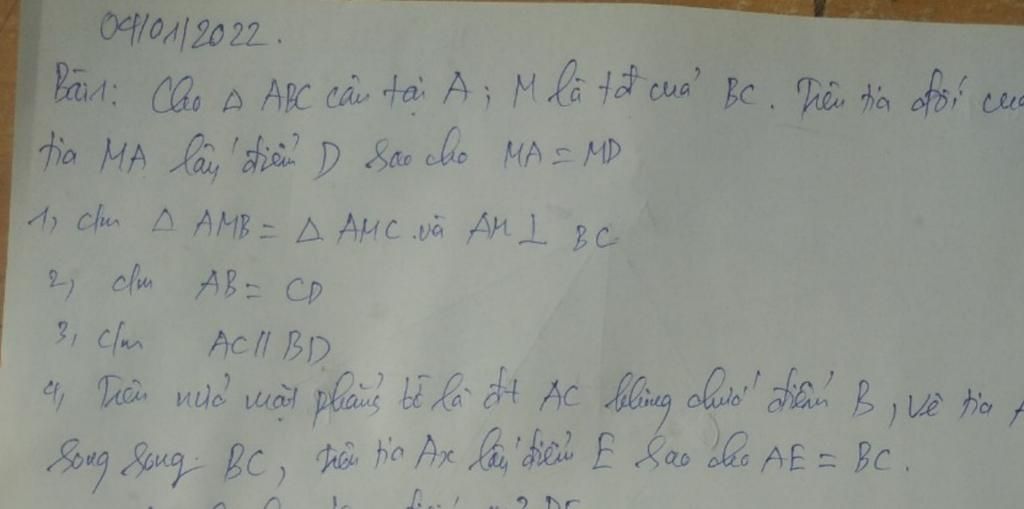 04/01/2022.
Bài 1: Cho △ ABC cân tại A; M là tđ của BC. Trên tia đối của
tia MA lấy điểm D sao cho MA = MD
1, c/m △ AMB = △ AMC và AM ⊥ BC
2, c/m AB = CD
3, c/m AC // BD
4, Trên nửa mặt phẳng bờ là đt AC không chứa điểm B, vẽ tia A
song song BC, trên tia Ax lấy điểm E sao cho AE = BC.